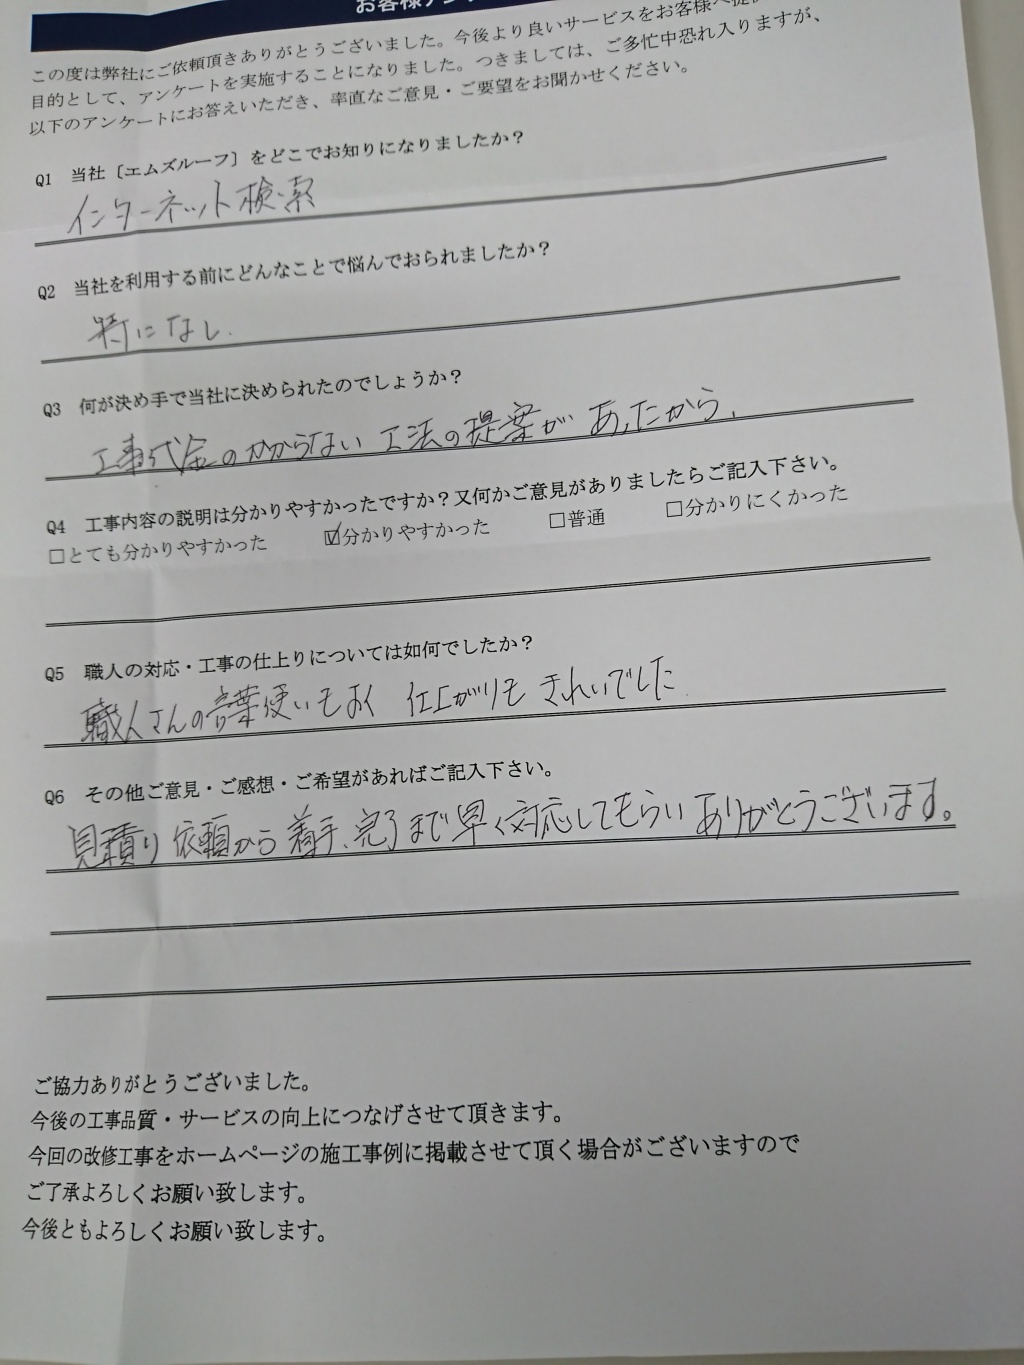 お客様アン
この度は弊社にご依頼頂きありがとうございました。今後より良いサービスをお客様へ提供
目的として、アンケートを実施することになりました。つきましては、ご多忙中恐れ入りますが、
以下のアンケートにお答えいただき、率直なご意見・ご要望をお聞かせください。
Q1 当社〔エムズルーフ〕をどこでお知りになりましたか？
インターネット検索
Q2 当社を利用する前にどんなことで悩んでおられましたか？
特になし.
Q3 何が決め手で当社に決められたのでしょうか？
工事代金のかからない工法の提案があったから、
Q4 工事内容の説明は分かりやすかったですか？又何かご意見がありましたらご記入下さい。
□とても分かりやすかった ☑分かりやすかった □普通 □分かりにくかった
Q5 職人の対応・工事の仕上りについては如何でしたか？
職人さんの言葉使いもよく 仕上がりも きれいでした
Q6 その他ご意見・ご感想・ご希望があればご記入下さい。
見積り依頼から着手、完了まで早く対応してもらいありがとうございます。
ご協力ありがとうございました。
今後の工事品質・サービスの向上につなげさせて頂きます。
今回の改修工事をホームページの施工事例に掲載させて頂く場合がございますので
ご了承よろしくお願い致します。
今後ともよろしくお願い致します。